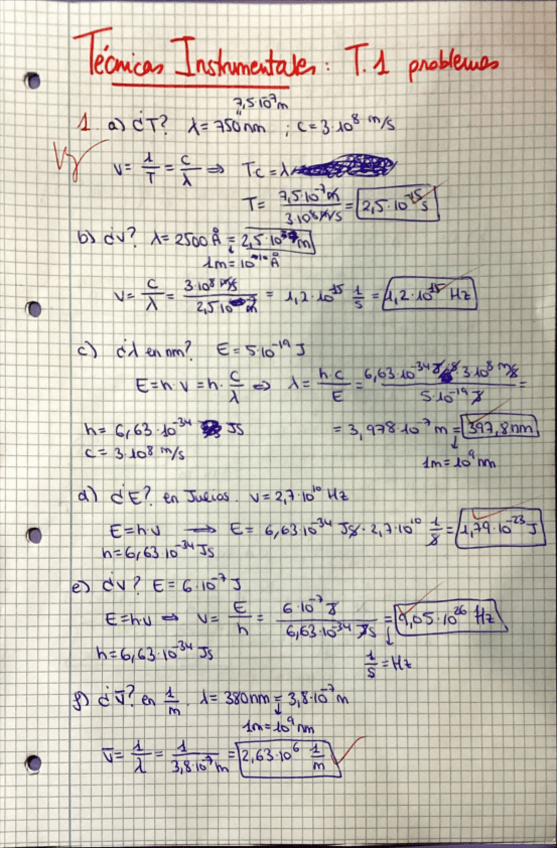 Técnicas Instrumentales: T.1 problemas
7,5·10⁻⁷m
1. a) ¿T? λ = 750nm ; c = 3·10⁸ m/s
ν = 1/T = c/λ ⇒ Tc = λ
T = 7,5·10⁻⁷ m / 3·10⁸ m/s = 2,5·10⁻¹⁵ s
b) ¿ν? λ = 2500 Å = 2,5·10⁻⁷ m
1m = 10⁻¹⁰ Å
ν = c/λ = 3·10⁸ m/s / 2,5·10⁻⁷ m = 1,2·10¹⁵ 1/s = 1,2·10¹⁵ Hz
c) ¿λ en nm? E = 5·10⁻¹⁹ J
E = h·ν = h·c/λ ⇒ λ = h·c/E = 6,63·10⁻³⁴ J·s·3·10⁸ m/s / 5·10⁻¹⁹ J =
h = 6,63·10⁻³⁴ JS = 3,978·10⁻⁷ m = 397,8nm
c = 3·10⁸ m/s 1m = 10⁹ nm
d) ¿E? en Julios. ν = 2,7·10¹⁰ Hz
E = h·ν → E = 6,63·10⁻³⁴ JS · 2,7·10¹⁰ 1/s = 1,79·10⁻²³ J
h = 6,63·10⁻³⁴ JS
e) ¿ν? E = 6·10⁻⁷ J
E = hν ⇒ ν = E/h = 6·10⁻⁷ J / 6,63·10⁻³⁴ JS = 9,05·10²⁶ Hz
h = 6,63·10⁻³⁴ JS 1/s = Hz
f) ¿ν̅? en 1/m. λ = 380nm = 3,8·10⁻⁷ m
1m = 10⁹ nm
ν̅ = 1/λ = 1 / 3,8·10⁻⁷ m = 2,63·10⁶ 1/m